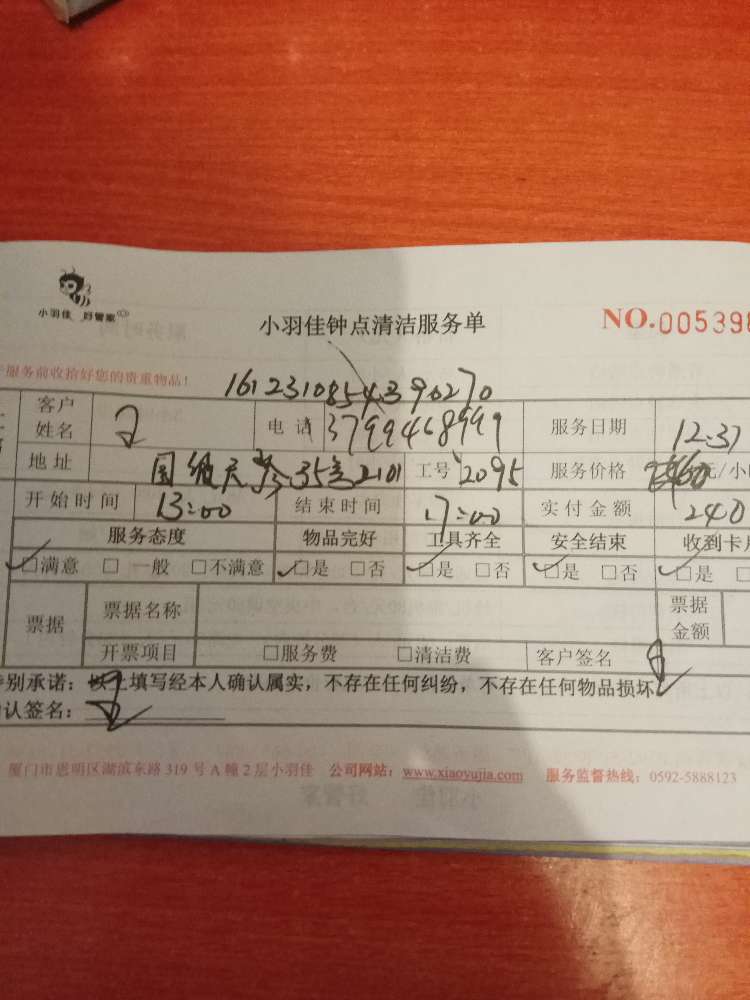 小羽佳 好管家
小羽佳钟点清洁服务单
NO.005398
服务前收拾好您的贵重物品!
1612310854390270
客户姓名 电话 13799468999 服务日期 12.31
地址 35 2101 工号 2095 服务价格 60元/小
开始时间 13:00 结束时间 17:00 实付金额 240
服务态度 物品完好 工具齐全 安全结束 收到卡
☑满意 □一般 □不满意 ☑是 □否 ☑是 □否 ☑是 □否 ☑是
票据 票据名称 票据金额
开票项目 □服务费 □清洁费 客户签名
特别承诺:以上填写经本人确认属实,不存在任何纠纷,不存在任何物品损坏
确认签名:
厦门市思明区湖滨东路 319 号 A 幢 2 层小羽佳 公司网站:www.xiaoyujia.com 服务监督热线:0592-5888123